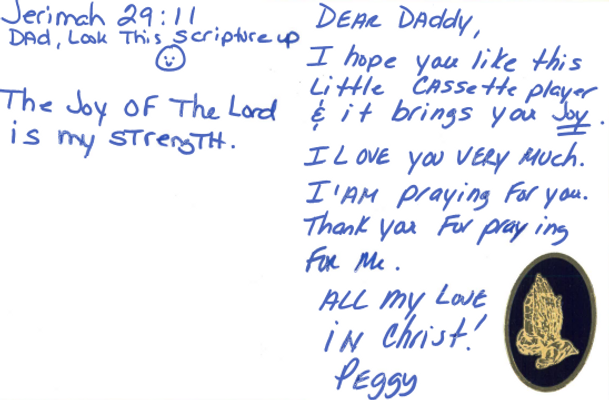 Jerimah 29:11
DAd, Look This Scripture up
The Joy OF The Lord
is my STrengTH.
DEAR DAddy,
I hope you like this
Little CASSette player
& it brings you Joy.
I LOVE you VERY MUCH.
I'AM praying For you.
Thank you For praying
For Me.
ALL my LOVE
IN Christ!
Peggy